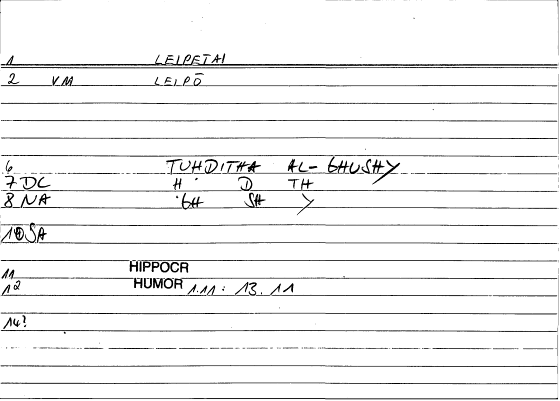 1 LEIPETAI
2 VM LEIPŌ
6 TUHDITHA AL-GHUSHY
7 DC H D TH
8 NA GH SH Y
10 SA
11 HIPPOCR
12 HUMOR 1.11: 13.11
14?